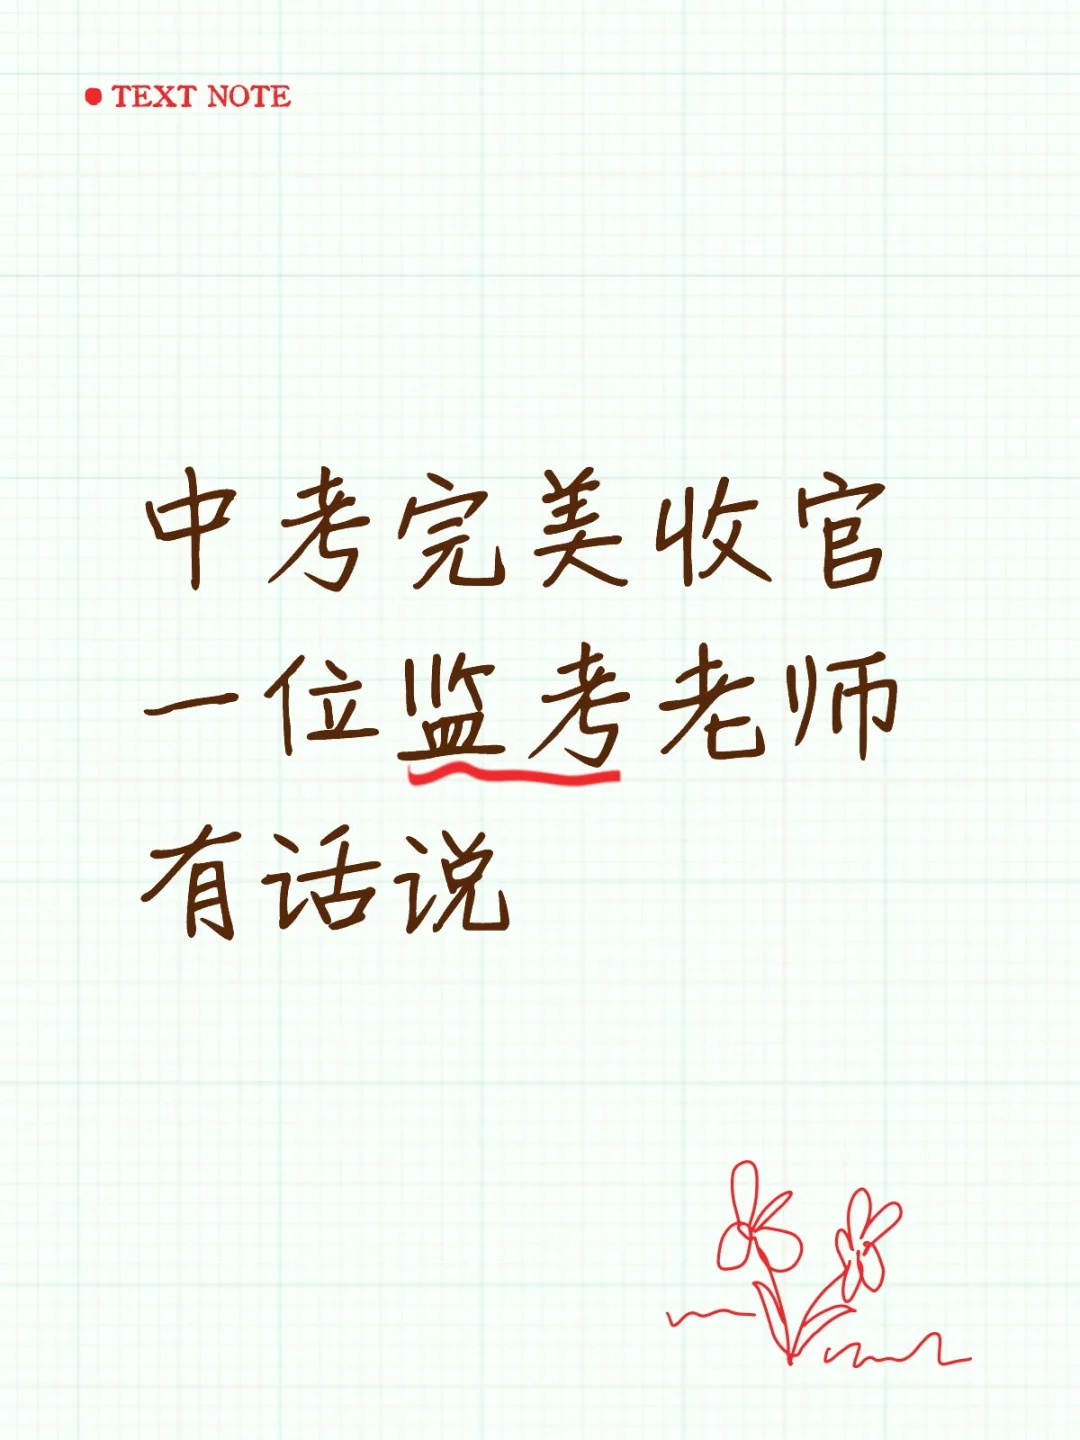 TEXT NOTE
中考完美收官
一位监考老师
有话说